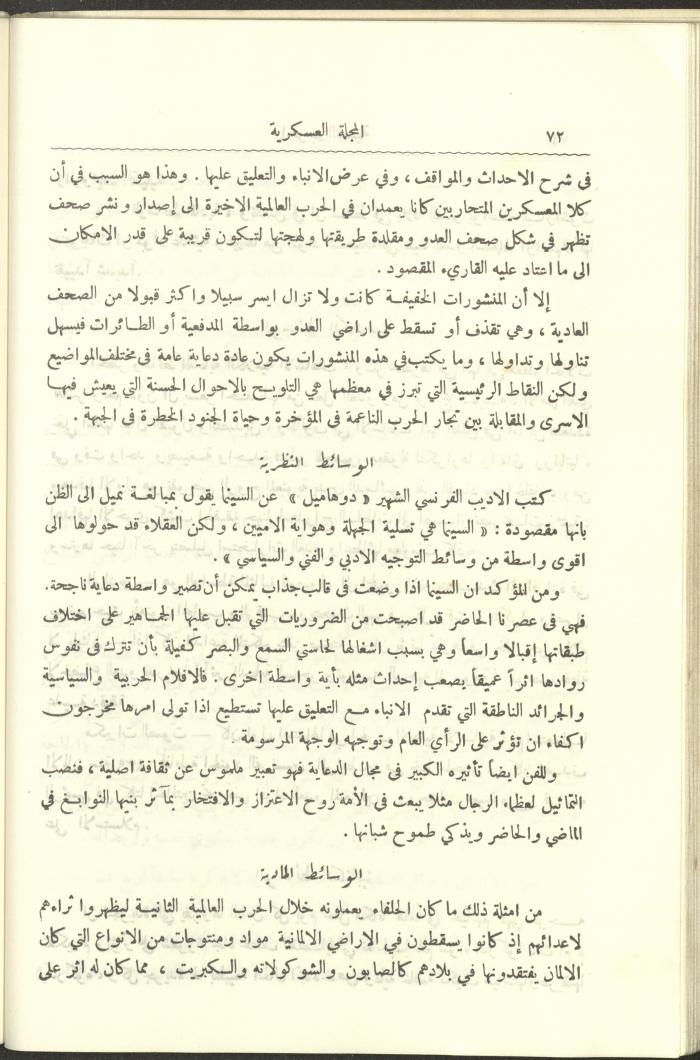 ٧٢
المجلة العسكرية
في شرح الاحداث والمواقف ، وفي عرض الانباء والتعليق عليها . وهذا هو السبب في أن
كلا المعسكرين المتحاربين كانا يعمدان في الحرب العالمية الاخيرة الى إصدار ونشر صحف
تظهر في شكل صحف العدو ومقلدة طريقتها ولهجتها لتكون قريبة على قدر الامكان
الى ما اعتاد عليه القاريء المقصود .
إلا أن المنشورات الخفيفة كانت ولا تزال ايسر سبيلا واكثر قبولا من الصحف
العادية ، وهي تقذف أو تسقط على اراضي العدو بواسطة المدفعية أو الطائرات فيسهل
تناولها وتداولها ، وما يكتب في هذه المنشورات يكون عادة دعاية عامة في مختلف المواضيع
ولكن النقاط الرئيسية التي تبرز في معظمها هي التلويح بالاحوال الحسنة التي يعيش فيها
الاسرى والمقابلة بين تجار الحرب الناعمة في المؤخرة وحياة الجنود الخطرة في الجبهة .
الوسائط النظرية
كتب الاديب الفرنسي الشهير « دوهاميل » عن السينما يقول بمبالغة نميل الى الظن
بانها مقصودة : « السينما هي تسلية الجهلة وهواية الاميين ، ولكن العقلاء قد حولوها الى
اقوى واسطة من وسائط التوجيه الادبي والفني والسياسي » .
ومن المؤكد ان السينما اذا وضعت في قالب جذاب يمكن أن تصير واسطة دعاية ناجحة.
فهي في عصرنا الحاضر قد اصبحت من الضروريات التي تقبل عليها الجماهير على اختلاف
طبقاتها إقبالا واسعاً وهي بسبب اشغالها لحاستي السمع والبصر كفيلة بأن تترك في نفوس
روادها اثراً عميقاً يصعب إحداث مثله بأية واسطة اخرى . فالافلام الحربية والسياسية
والجرائد الناطقة التي تقدم الانباء مع التعليق عليها تستطيع اذا تولى امرها مخرجون
اكفاء ان تؤثر على الرأي العام وتوجهه الوجهة المرسومة .
وللفن ايضاً تأثيره الكبير في مجال الدعاية فهو تعبير ملموس عن ثقافة اصلية ، فنصب
التماثيل لعظماء الرجال مثلا يبعث في الأمة روح الاعتزاز والافتخار بمآثر بنيها النوابغ في
الماضي والحاضر ويذكي طموح شبانها .
الوسائط المادية
من امثلة ذلك ما كان الحلفاء يعملونه خلال الحرب العالمية الثانية ليظهروا ثراءهم
لاعدائهم إذ كانوا يسقطون في الاراضي الالمانية مواد ومنتوجات من الانواع التي كان
الالمان يفتقدونها في بلادهم كالصابون والشوكولاته والسكبريت ، مما كان له اثر على